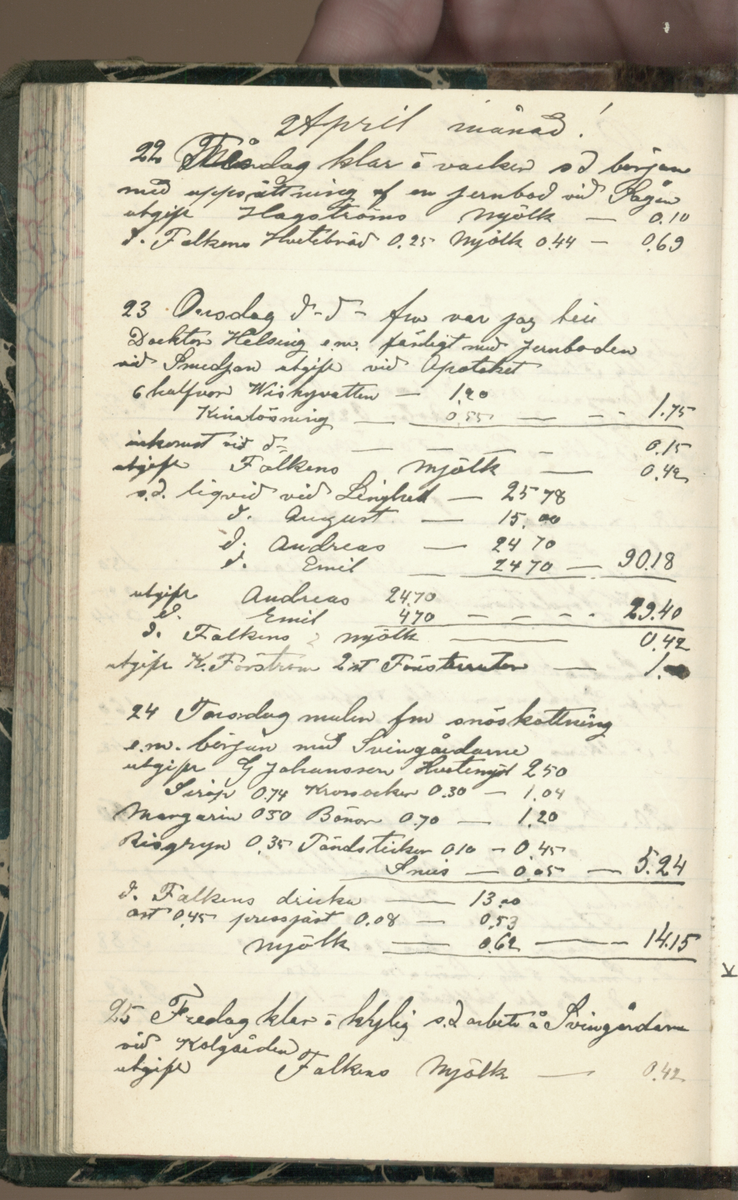 April månad!
22 Tisdag klar o vacker s.d början
med uppsättning af en jernbod vid Sågen
utgift Hagströms Mjölk — 0.10
d. Falkens Hvetebröd 0.25 Mjölk 0.44 — 0.69
23 Onsdag d-d- fm var jag
Docktor Helsing e.m. färdigt med jernboden
vid Smedjan utgift vid Apoteket
6 halfvor Wiskyvatten — 1.20
Kinalösning — 0.55 — - - 1.75
inkomst vid d- — — — 0.15
utgift Falkens Mjölk — 0.42
s.d. liqvid vid Linghed — 25 78
d. August — 15.00
d. Andreas — 24 70
d. Emil — 24 70 — 90.18
utgift Andreas 24.70
d. Emil 4.70 - - - - 29.40
d. Falkens mjölk — 0.42
utgift K. Forström 2 st Fönsterrutor — 1.
24 Torsdag mulen fm snöskottning
e.m. början med Svingårdarne
utgift G Johansson Hvetemjöl 2 50
Sirap 0.74 Krossocker 0.30 — 1.04
Margarin 0 50 Bönor 0.70 — 1.20
Risgryn 0.35 Tändstickor 0.10 — 0.45
Snus — 0.05 — 5.24
d. Falkens dricka — 13.00
ost 0.45 pressjäst 0.08 — 0.53
Mjölk — 0.62 — 14.15
25 Fredag klar o kylig s.d arbete å Svingårdarne
vid Kolgården
utgift Falkens Mjölk — 0.42
K